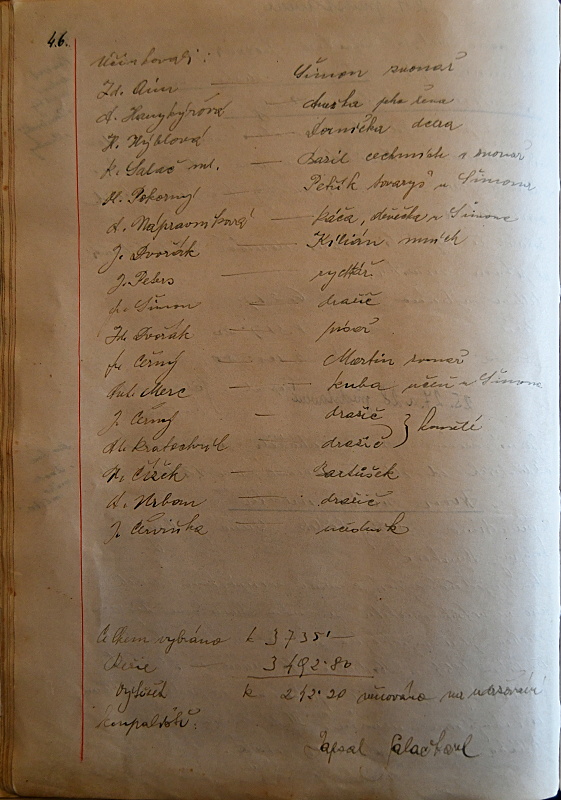 46.
Účinkovali:
Zd. Aim — Šimon zvonař
A. Hanykýřová Anežka jeho žena
H. Hýblová — Dornička dcera
K. Salač ml. — Bazil cechmistr zvonař
H. Pokorný — Petřík tovaryš u Šimona
A. Nápravníková — Káča, děvečka u Šimona
J. Dvořák — Kilián mnich
J. Pebrs — rychtář
A. Šimon — drašič
Zd. Dvořák — písař
Fr. Černý — Martin zvonař
Ant. Merc — Kuba učeň u Šimona
J. Černý — drašič
Al. Kratochvíl drašič } konšelé
H. Čížek — Bartůšek
A. Urban — drašič
J. Červinka — úředník
Celkem vybráno K 3735'—
Režie — 3492.80
Výtěžek K 242.20 věnováno na udržování
koupaliště.
Zapsal Salač Karel